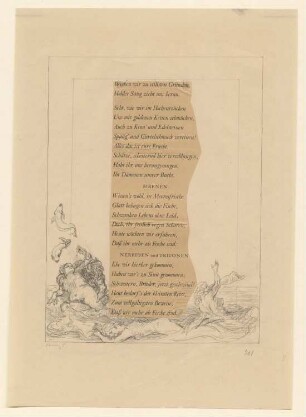 Wecken wir zu vollern Grimmen.
Holder Sang zieht uns heran.
Seht, wie wir im Hochentzücken
Uns mit goldenen Ketten schmücken,
Auch zu Kron' und Edelsteinen
Spang' und Gürtelschmuck vereinen!
Alles das ist eure Frucht.
Schätze, scheiternd hier verschlungen,
Habt ihr uns herangesungen,
Ihr Dämonen unsrer Bucht.
SIRENEN
Wissen's wohl, in Meeresfrische
Glatt behagen sich die Fische,
Schwanken Lebens ohne Leid;
Doch, ihr festlich regen Scharen,
Heute möchten wir erfahren,
Daß ihr mehr als Fische seid.
NEREIDEN und TRITONEN
Ehe wir hieher gekommen,
Haben wir's zu Sinn genommen;
Schwestern, Brüder, jetzt geschwind!
Heut bedarf's der kleinsten Reise,
Zum vollgültigsten Beweise,
Daß wir mehr als Fische sind.